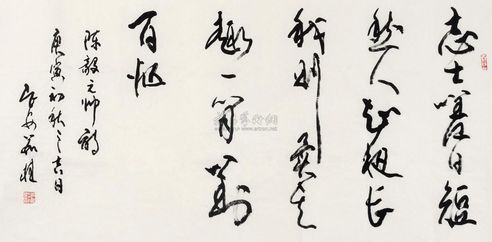 志士嗟日短
愁人知夜长
我则异其
趣一笑对
百忙
陈毅元帅诗
庚寅初秋之吉日
长安茹桂